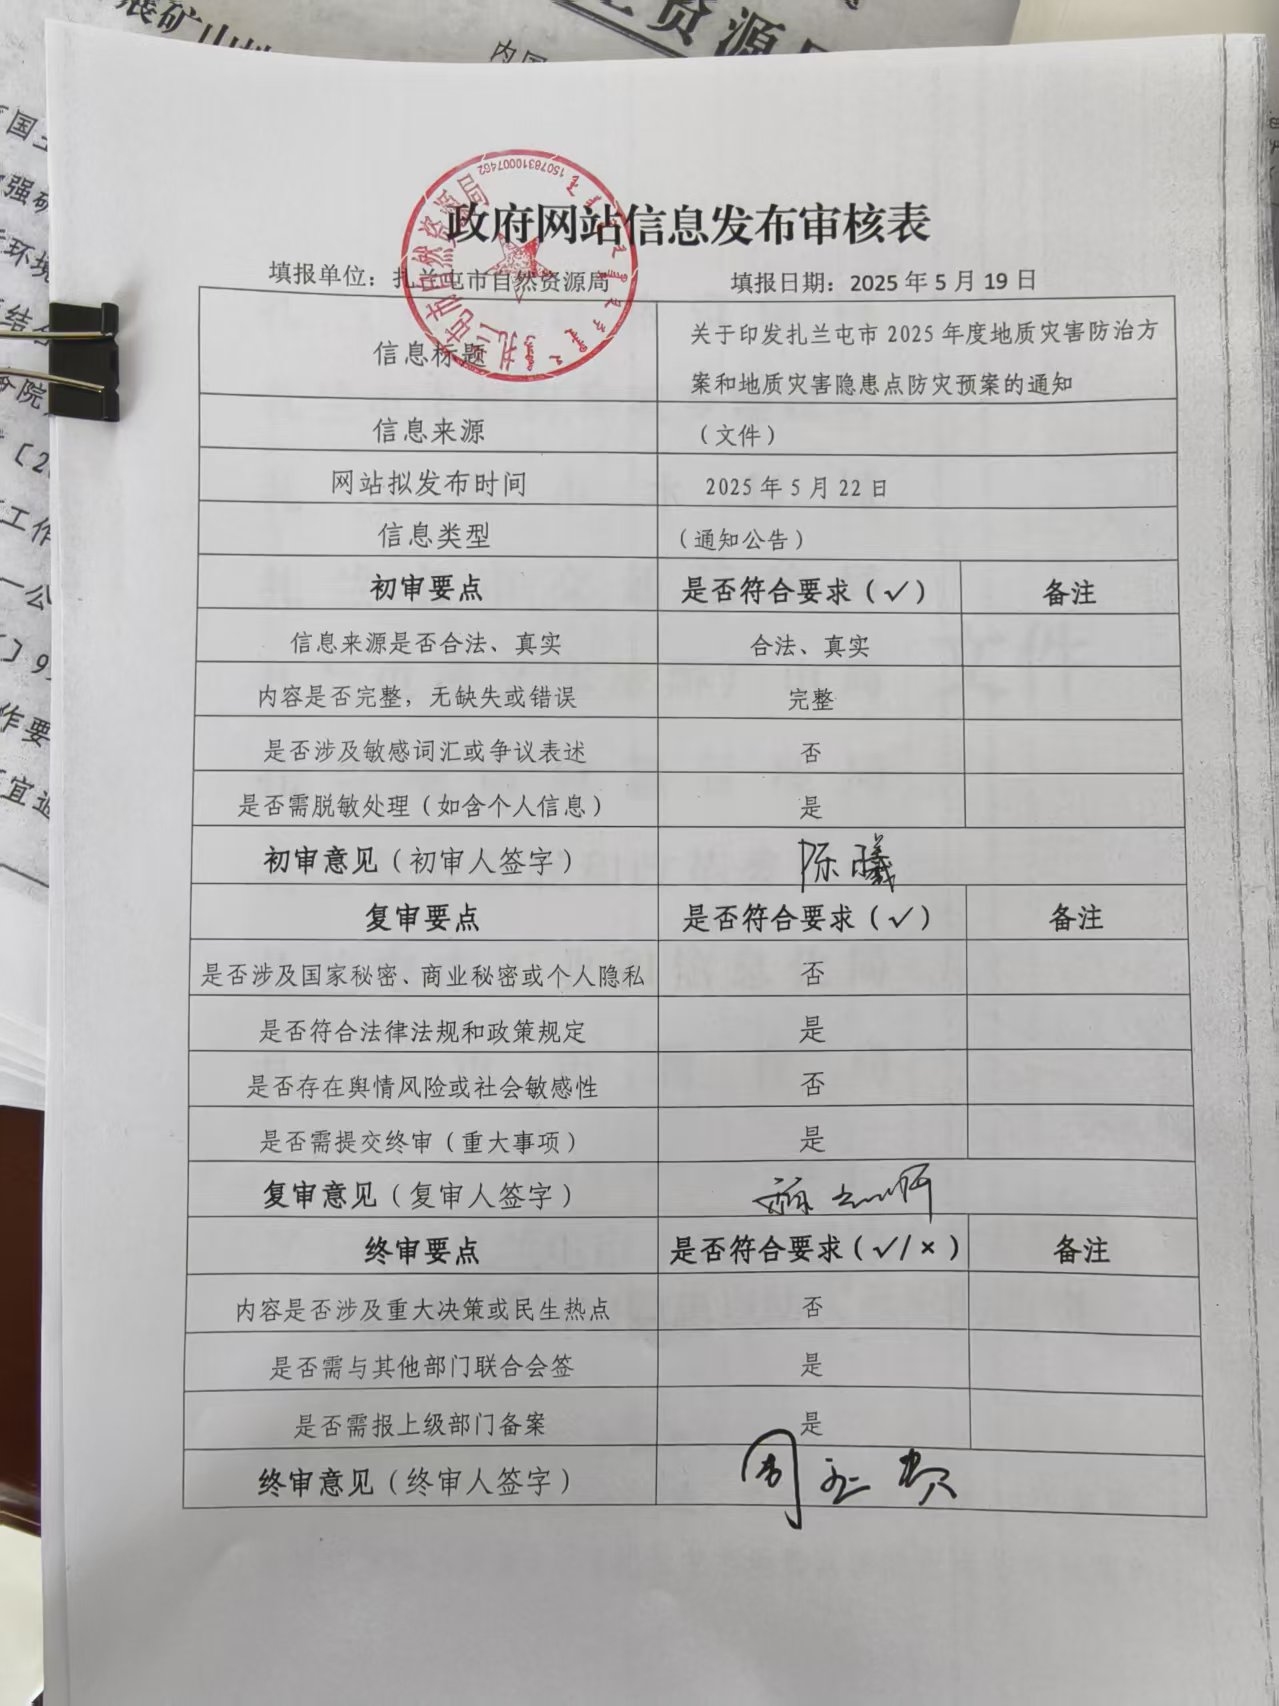 政府网站信息发布审核表
填报单位：扎兰屯市自然资源局 填报日期：2025年5月19日
信息标题 关于印发扎兰屯市2025年度地质灾害防治方
案和地质灾害隐患点防灾预案的通知
信息来源 （文件）
网站拟发布时间 2025年5月22日
信息类型 （通知公告）
初审要点 是否符合要求（√） 备注
信息来源是否合法、真实 合法、真实
内容是否完整，无缺失或错误 完整
是否涉及敏感词汇或争议表述 否
是否需脱敏处理（如含个人信息） 是
初审意见（初审人签字） 陈曦
复审要点 是否符合要求（√） 备注
是否涉及国家秘密、商业秘密或个人隐私 否
是否符合法律法规和政策规定 是
是否存在舆情风险或社会敏感性 否
是否需提交终审（重大事项） 是
复审意见（复审人签字）
终审要点 是否符合要求（√/×） 备注
内容是否涉及重大决策或民生热点 否
是否需与其他部门联合会签 是
是否需报上级部门备案 是
终审意见（终审人签字）
扎兰屯市自然资源局
15078310007462